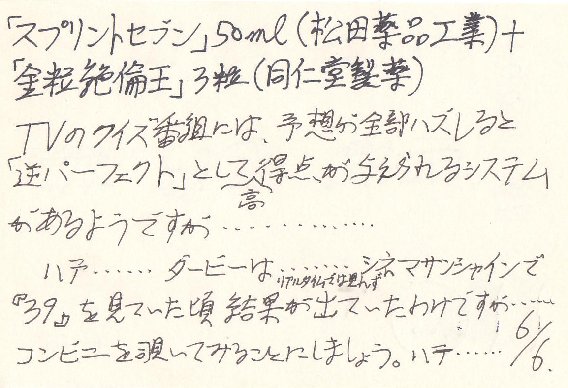 「スプリントセブン」50ml(松田薬品工業)+
「金粒絶倫王」3粒(同仁堂製薬)
TVのクイズ番組には、予想が全部ハズレると
「逆パーフェクト」として、高得点が与えられるシステム
があるようですが‥‥‥‥‥‥
ハテ‥‥‥ ダービーは‥‥‥‥リアルタイムでは見んず シネマサンシャインで
『39』を見ていた頃結果が出ていたわけですが‥‥‥
コンビニを覗いてみることにしましょう。ハテ‥‥‥
6/6.